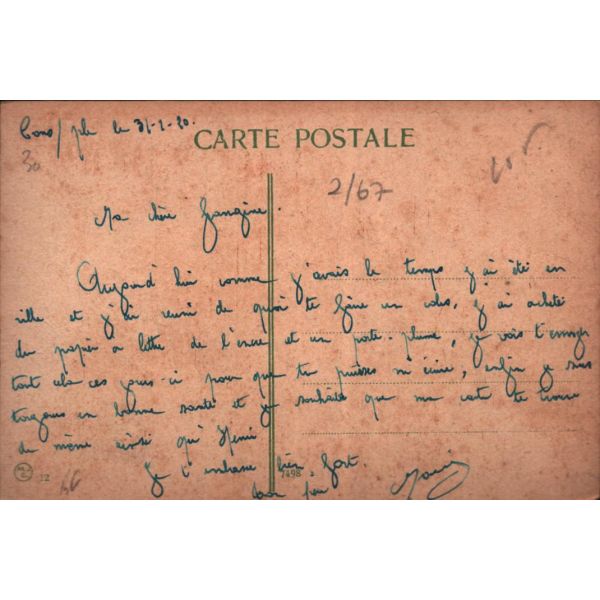 Cons/ple le 31-1-20.
CARTE POSTALE
30
2/67
Ma chère
Aujourd'hui comme j'avais le temps j'ai été en
ville et j'ai réuni de quoi te faire un colis, j'ai acheté
du papier à lettre de l'encre et un porte-plume, je vais t'envoyer
tout cela ces jours-ci pour que tu puisses m'écrire, enfin je suis
toujours en bonne santé et je souhaite que ma carte te trouve
de même ainsi qu'Henri
Je t'embrasse bien fort.
12
7498